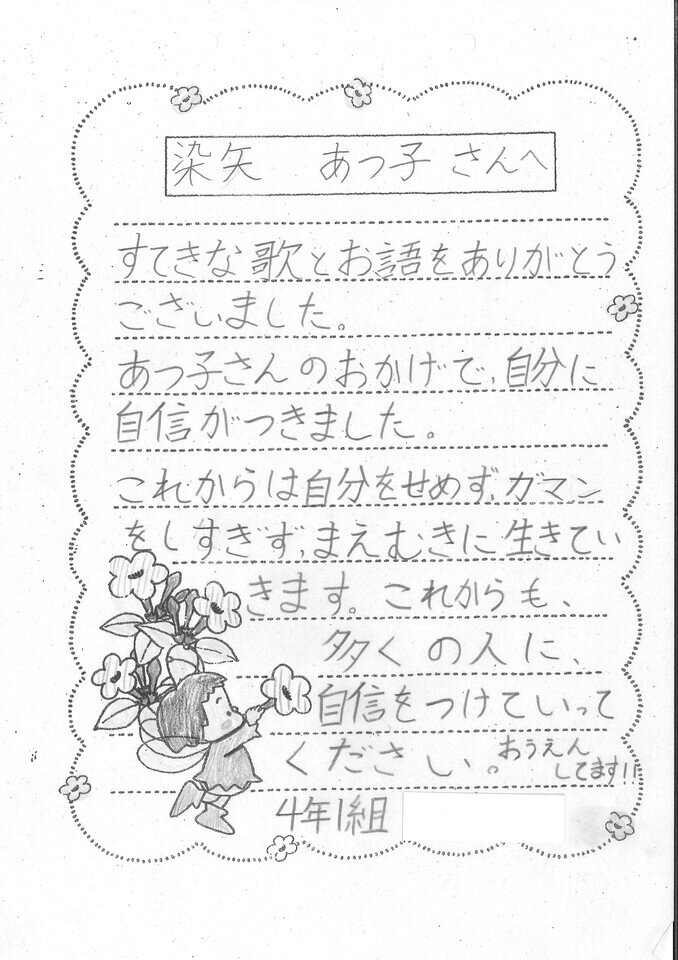 染矢 あっ子 さんへ
すてきな歌とお語をありがとう
ございました。
あっ子さんのおかげで、自分に
自信がつきました。
これからは自分をせめず、ガマン
をしすぎず、まえむきに生きてい
きます。これからも、
多くの人に、
自信をつけていって
ください。おうえん
してます!!
4年1組